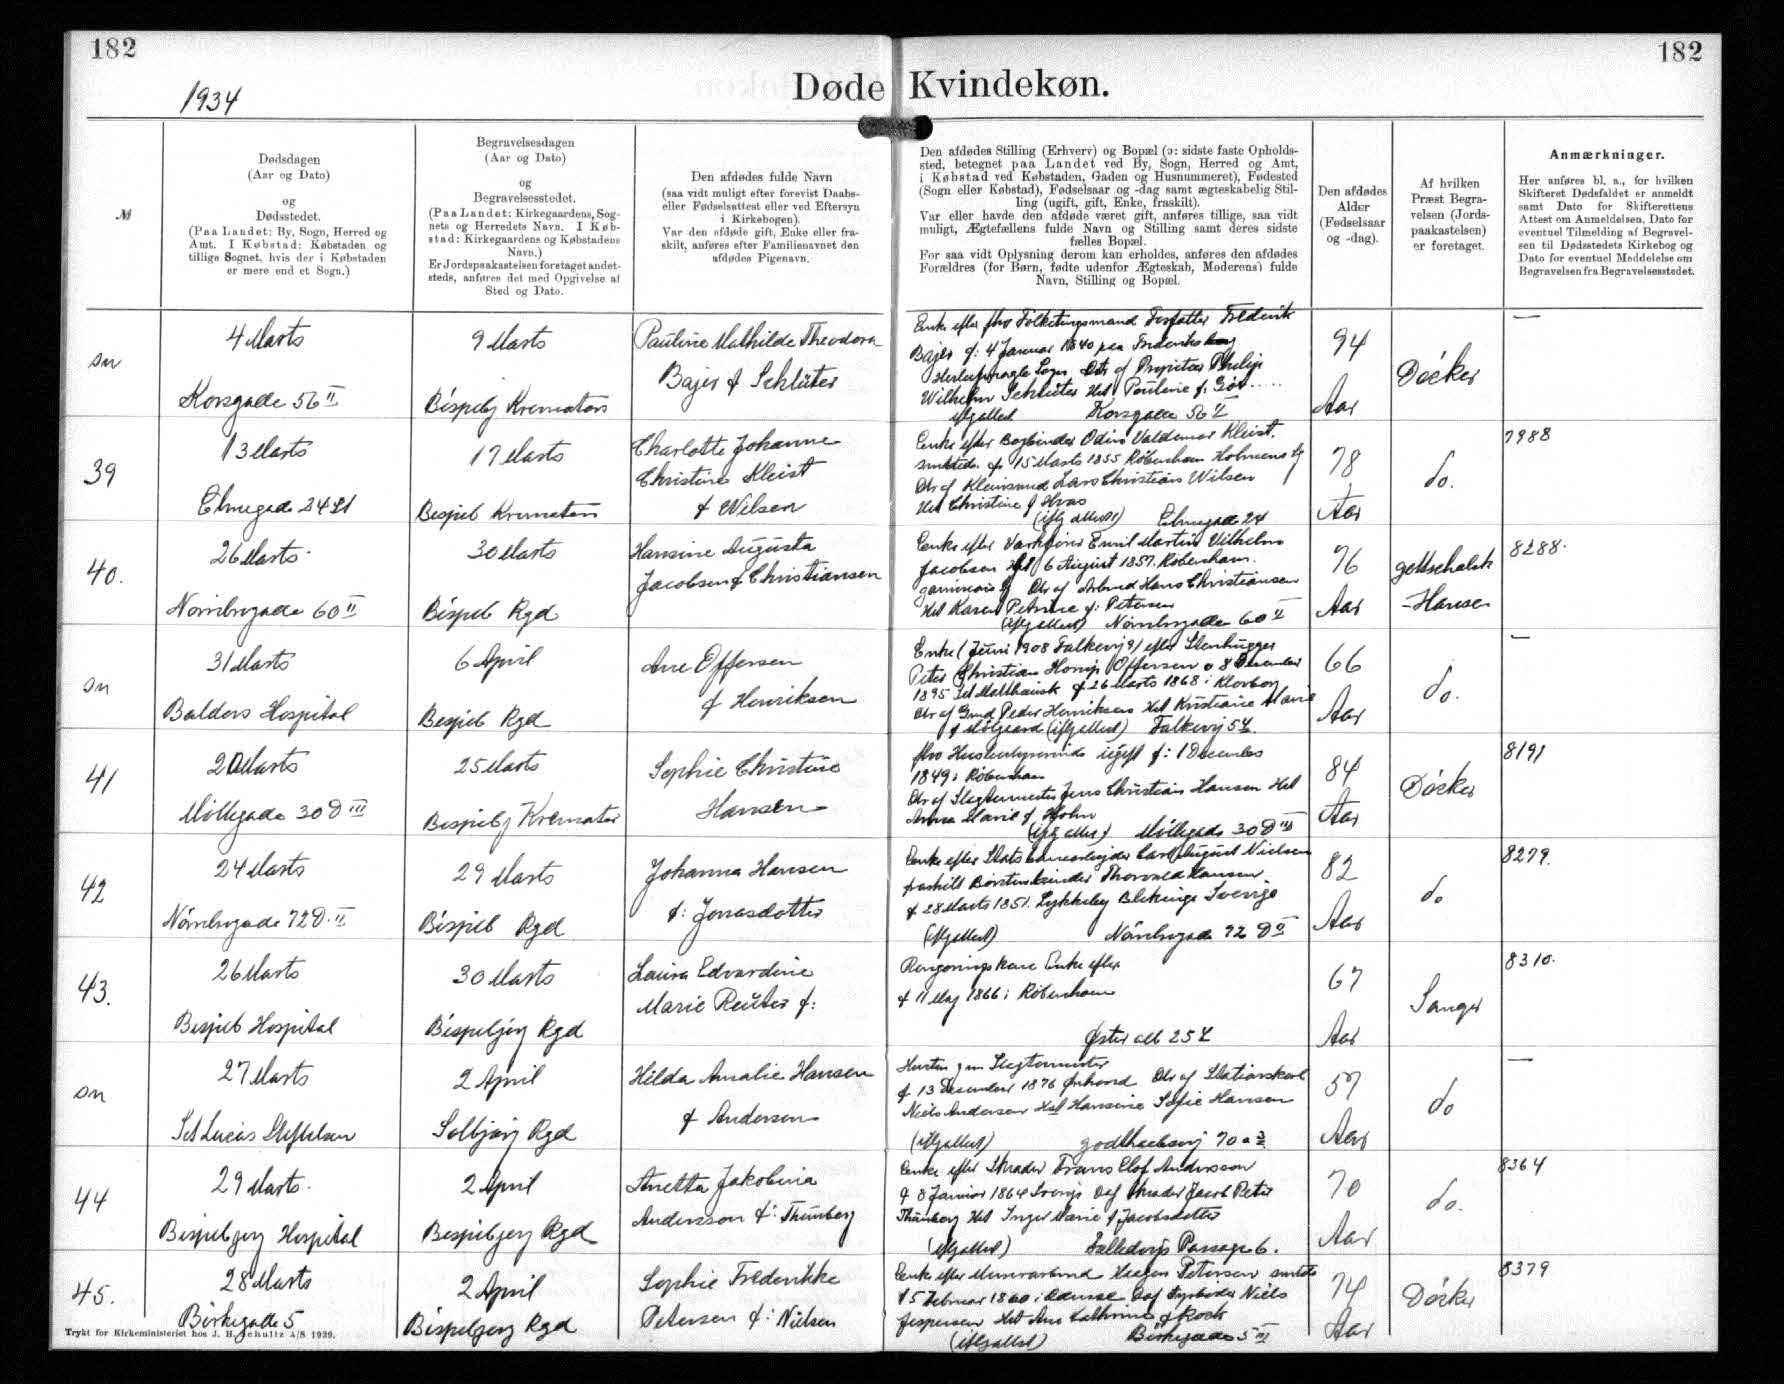 182
182
1934
Døde Kvindekøn.
№
Dødsdagen
(Aar og Dato)
og
Dødsstedet.
(Paa Landet: By, Sogn, Herred og
Amt. I Købstad: Købstaden og
tillige Sognet, hvis der i Købstaden
er mere end et Sogn.)
Begravelsesdagen
(Aar og Dato)
og
Begravelsesstedet.
(Paa Landet: Kirkegaardens, Sog-
nets og Herredets Navn. I Køb-
stad: Kirkegaardens og Købstadens
Navn.)
Er Jordspaakastelsen foretaget andet-
steds, anføres det med Opgivelse af
Sted og Dato.
Den afdødes fulde Navn
(saa vidt muligt efter forevist Daabs-
eller Fødselsattest eller ved Eftersyn
i Kirkebogen).
Var den afdøde gift, Enke eller fra-
skilt, anføres efter Familienavnet den
afdødes Pigenavn.
Den afdødes Stilling (Erhverv) og Bopæl (ɔ: sidste faste Opholds-
sted, betegnet paa Landet ved By, Sogn, Herred og Amt,
i Købstad ved Købstaden, Gaden og Husnummeret), Fødested
(Sogn eller Købstad), Fødselsaar og -dag samt ægteskabelig Stil-
ling (ugift, gift, Enke, fraskilt).
Var eller havde den afdøde været gift, anføres tillige, saa vidt
muligt, Ægtefællens fulde Navn og Stilling samt deres sidste
fælles Bopæl.
For saa vidt Oplysning derom kan erholdes, anføres den afdødes
Forældres (for Børn, fødte udenfor Ægteskab, Moderens) fulde
Navn, Stilling og Bopæl.
Den afdødes
Alder
(Fødselsaar
og -dag).
Af hvilken
Præst Begra-
velsen (Jords-
paakastelsen)
er foretaget.
Anmærkninger.
Her anføres bl. a., for hvilken
Skifteret Dødsfaldet er anmeldt
samt Dato for Skifterettens
Attest om Anmeldelsen, Dato for
eventuel Tilmelding af Begravel-
sen til Dødsstedets Kirkebog og
Dato for eventuel Meddelelse om
Begravelsen fra Begravelsesstedet.
sn
4 Marts
Korsgade 56 II
9 Marts
Bispebj Krematori
Pauline Mathilde Theodora
Bajer f Schlüter
Enke efter fhv Folketingsmand Forfatter Frederik
Bajer f: 4 Januar 1840 paa Frederiks
Herlufmagle Sogn Dtr af Proprietær Philip
Wilhelm Schlüter Hst Pauline f:
Korsgade 56 II
94
Aar
Döcker
—
39
13 Marts
Elmegade 24 St
17 Marts
Bispeb Krematori
Charlotte Johanne
Christine Kleist
f Wilsen
Enke efter Bogbinder Odin Valdemar Kleist.
f. 15 Marts 1855 København Holmens Sg
Dtr af Kleinsmed Lars Christian Wilsen
Hst Christine f Hvas
Elmegade 24
78
Aar
do.
7988
40.
26 Marts
Nørrebrogade 60 II
30 Marts
Bispeb Kgd
Hansine Augusta
Jacobsen f Christiansen
Enke efter Værkfører Emil Martin Vilhelm
Jacobsen 6 August 1857. København.
Garnisons Sg Dtr af Arbmd Hans Christiansen
Hst Karen Petrine f: Petersen
Nørrebrogade 60 II
76
Aar
Gottschalck
-Hansen
8288.
sn
31 Marts
Balders Hospital
6 April
Bispeb Kgd
Ane Offersen
f Henriksen
Enke (Juni 1908 Falkevej 9) efter Stenhugger
Peter Christian Offersen 8 December
1895 Sct Matthæusk f 26 Marts 1868 i Klovborg
Dtr af Gmd Peder Henriksen Hst Kristiane Marie
f Mølgaard Falkevej 5
66
Aar
do.
—
41
20 Marts
Møllegade 30 D III
25 Marts
Bispebj Kremator
Sophie Christine
Hansen
fhv Husbestyrerinde ugift f: 1 December
1849 i København
Dtr af Slagtermester Jens Christian Hansen Hst
Anna Marie f Holm
Møllegade 30 D III
84
Aar
Döcker
8191
42
24 Marts
Nørrebrogade 72 D. II
29 Marts
Bispeb Kgd
Johanna Hansen
f: Jonasdotter
Enke efter Statsbanearbejder Carl August Nielsen
fraskilt Børstenbinder Thorvald Hansen
f 28 Marts 1851. Lykkeby Blekinge Sverige
Nørrebrogade 72 D II
82
Aar
do
8279.
43.
26 Marts
Bispeb Hospital
30 Marts
Bispebjerg Kgd
Laura Edvardine
Marie Reuter f:
Rengøringskone Enke efter
f 11 Maj 1866 i København
Øster all 25
67
Aar
Sanger
8310.
sn
27 Marts
Sct Lucas Stiftelsen
2 April
Solbjerg Kgd
Hilda Amalie Hansen
f Andersen
Hustru Slagtermester
f 13 December 1876 Dtr af Stationskarl
Niels Andersen Hst Hansine Sofie Hansen
Godthaabsvej 70 a 3
57
Aar
do
—
44
29 Marts
Bispebjerg Hospital
2 April
Bispebjerg Kgd
Anetta Jakobina
Andersson f: Thunberg
Enke efter Skræder Frans Olof Andersson
f 8 Januar 1864 Sverige D af Skræder Jacob Peter
Thunberg Hst Inger Marie f Jacobsdotter
Fælledvejs Passage 6.
70
Aar
do.
8364
45.
28 Marts
Birkegade 5
2 April
Bispebjerg Kgd
Sophie Frederikke
Petersen f: Nielsen
Enke efter Murerarbmd Petersen
f 5 Februar 1860 i Odense D af Niels
Jespersen Hst Ane Cathrine f Rock
Birkegade 5 II
74
Aar
Döcker
8379
Trykt for Kirkeministeriet hos J. H. Schultz A/S 1929.